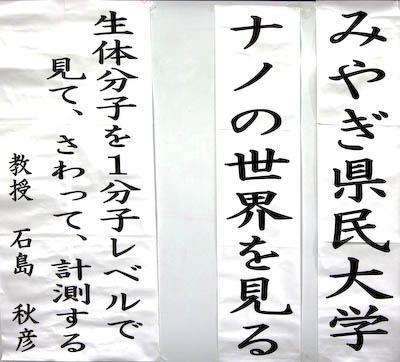 みやぎ県民大学
ナノの世界を見る
生体分子を1分子レベルで
見て、さわって、計測する
教授 石島 秋彦